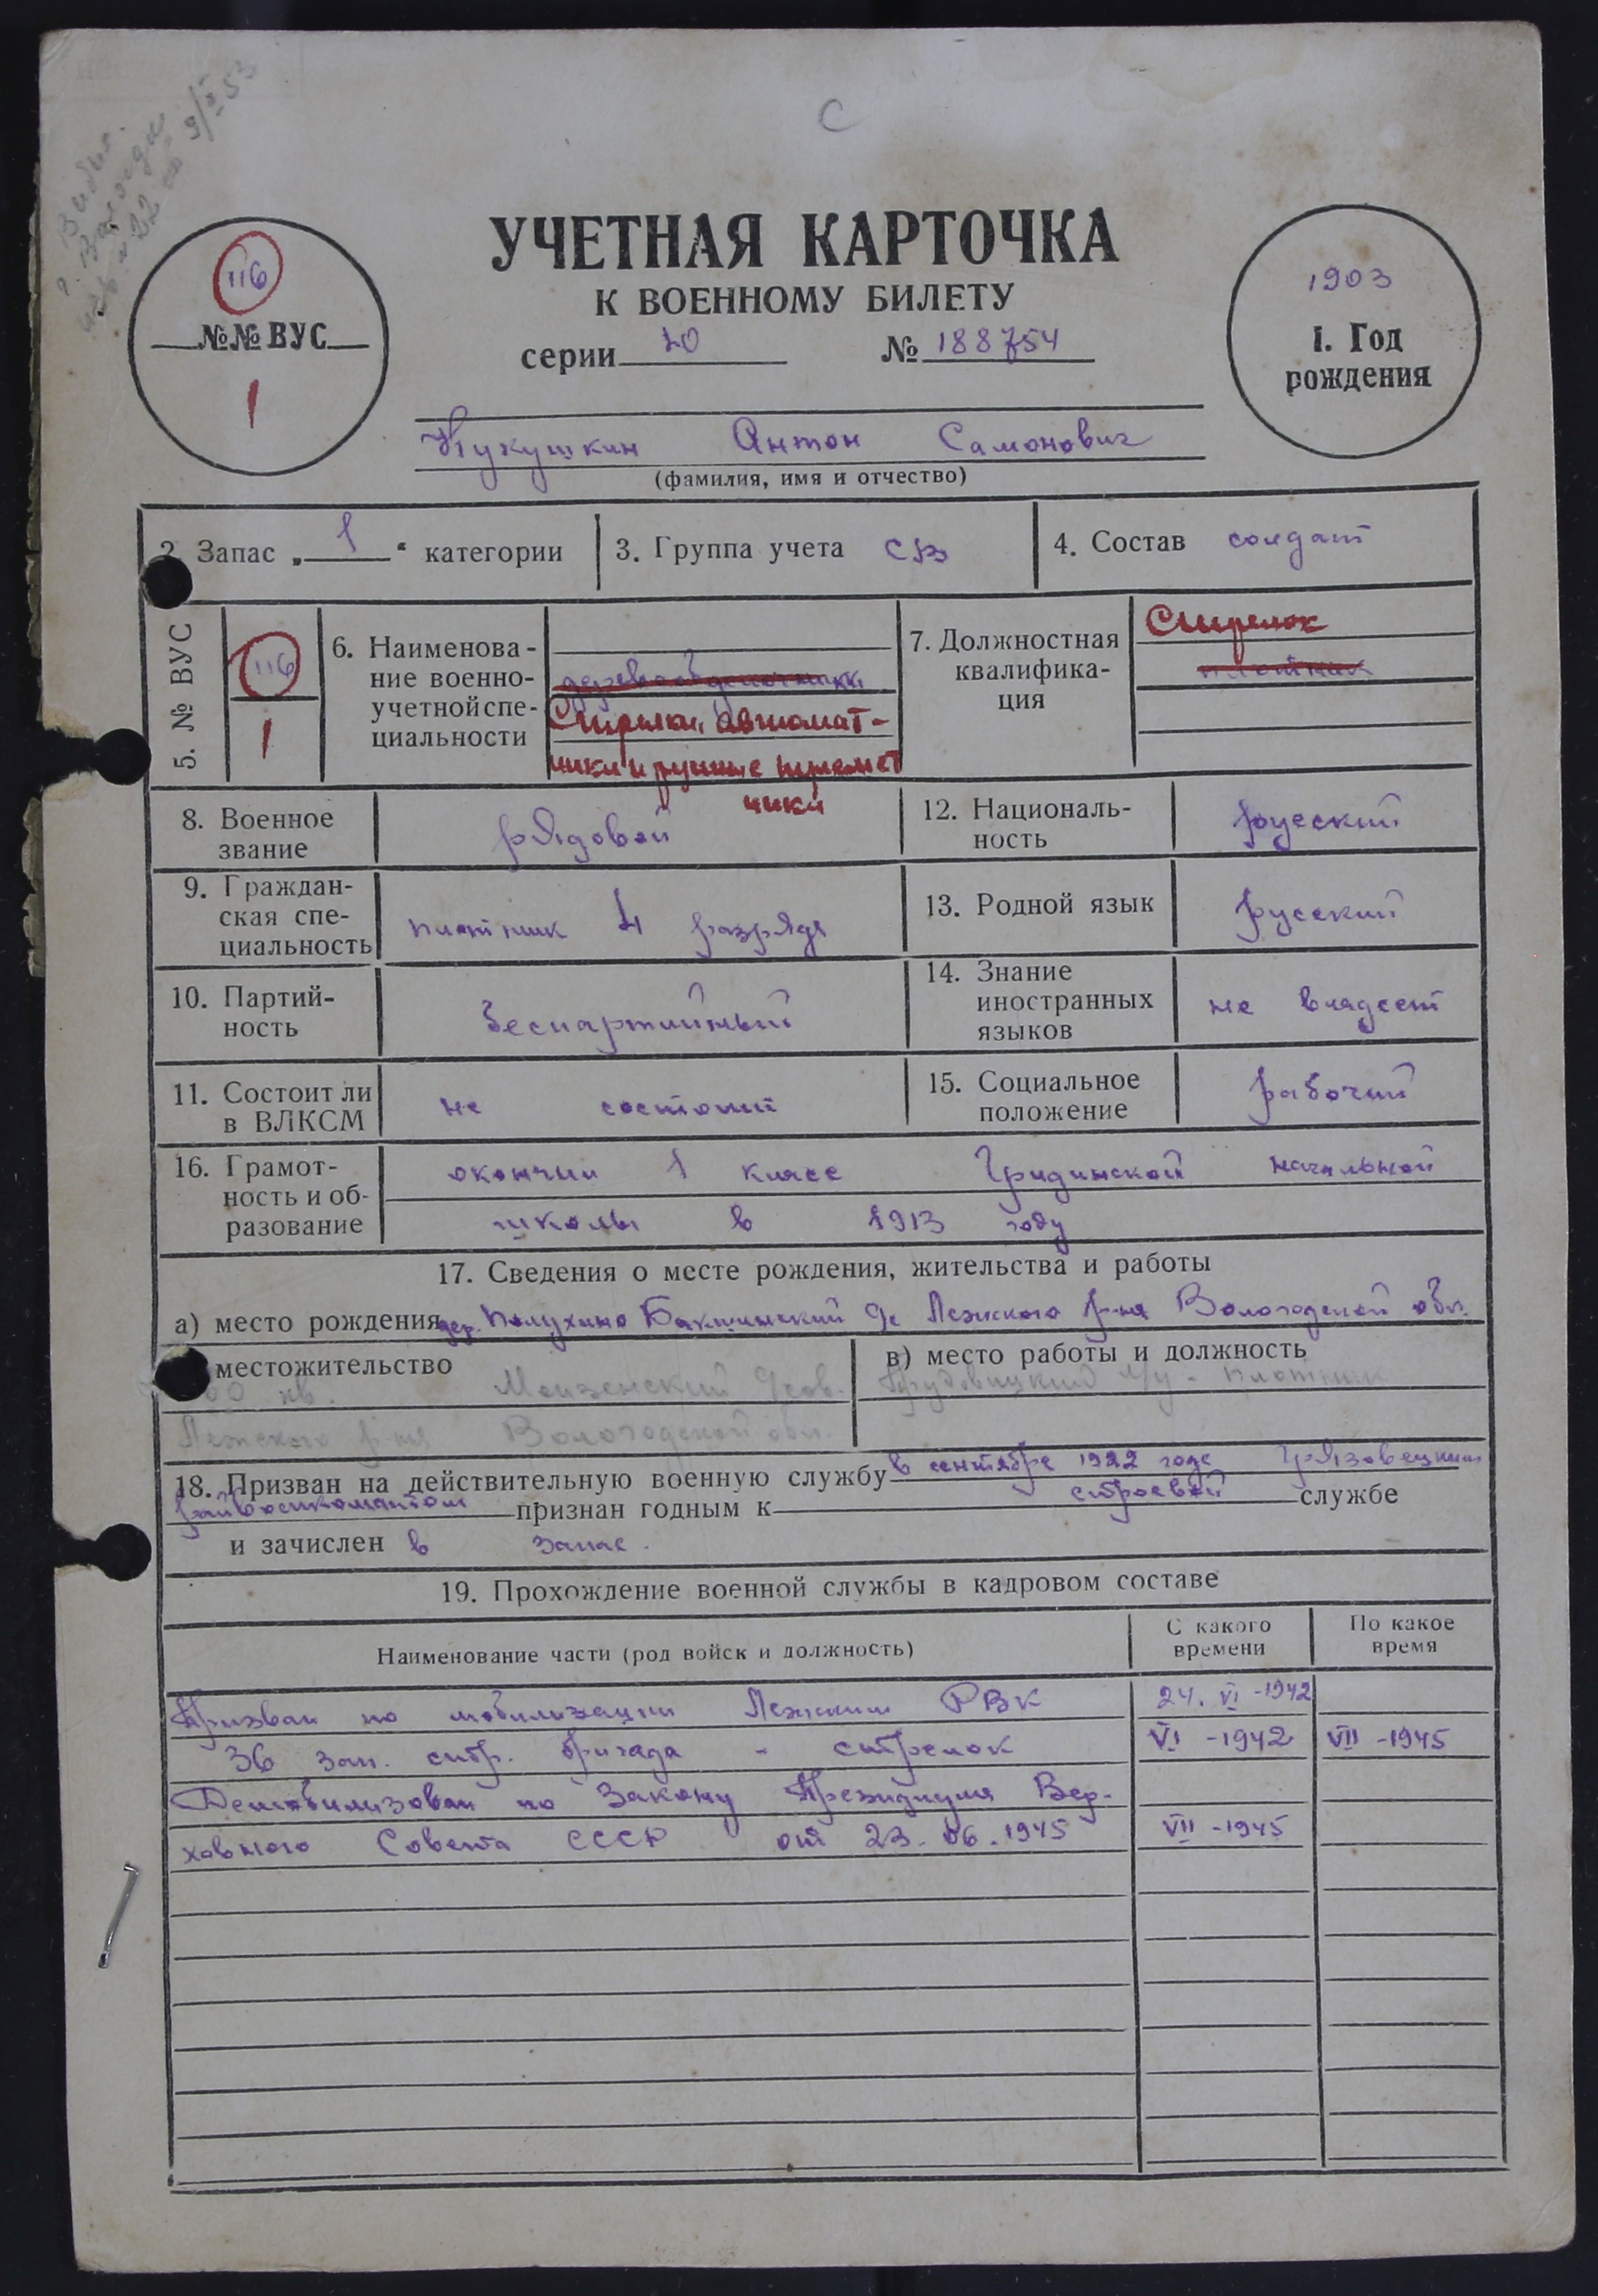 С
Выбыл
г. Вологда
9/X 53
116
№№ ВУС
1
УЧЕТНАЯ КАРТОЧКА
К ВОЕННОМУ БИЛЕТУ
серии 10 № 188754
1903
1. Год
рождения
Кукушкин Антон Самонович
(фамилия, имя и отчество)
2. Запас „ 1 “ категории
3. Группа учета СВ
4. Состав солдат
5. № ВУС
116
1
6. Наименова-
ние военно-
учетной спе-
циальности
деревообделочники
Стрелки, автомат-
чики и ручные пулемет
чики
7. Должностная
квалифика-
ция
Стрелок
плотник
8. Военное
звание
рядовой
12. Националь-
ность
русский
9. Граждан-
ская спе-
циальность
плотник 4 разряда
13. Родной язык
русский
10. Партий-
ность
беспартийный
14. Знание
иностранных
языков
не владеет
11. Состоит ли
в ВЛКСМ
не состоит
15. Социальное
положение
рабочий
16. Грамот-
ность и об-
разование
окончил 1 класс Гридинской начальной
школы в 1913 году
17. Сведения о месте рождения, жительства и работы
а) место рождения дер. Полухино Бакшинский с/с Лежского р-на Вологодской обл.
местожительство
60 кв. Монзенский с/сов.
Лежского р-на Вологодской обл.
в) место работы и должность
л/у - плотник
18. Призван на действительную военную службу в сентябре 1922 года Грязовецким
райвоенкоматом признан годным к строевой службе
и зачислен в запас.
19. Прохождение военной службы в кадровом составе
Наименование части (род войск и должность)
С какого
времени
По какое
время
Призван по мобилизации Лежским РВК 24. VI -1942
36 зап. стр. бригада - стрелок VI -1942 VII -1945
Демобилизован по Закону Президиума Вер-
ховного Совета СССР от 23.06.1945 VII -1945